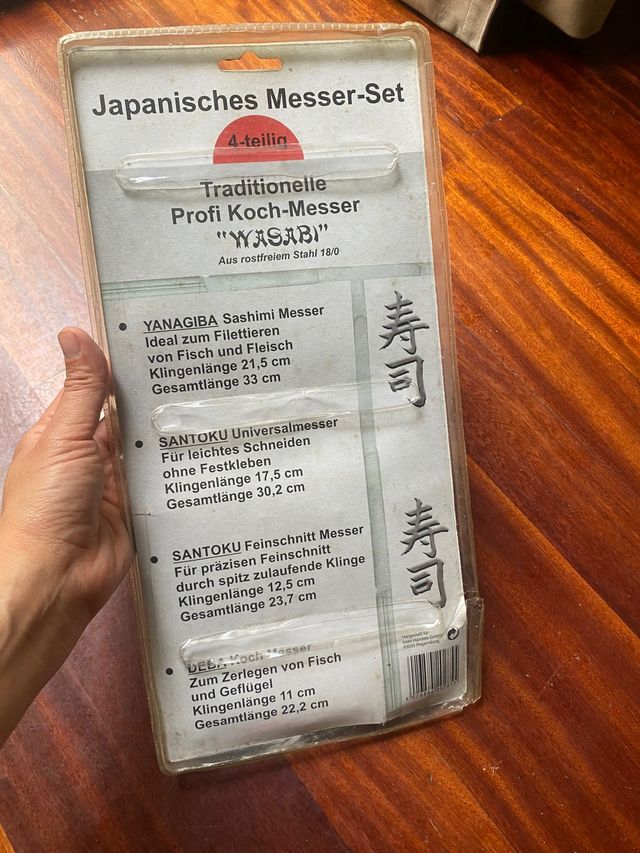 Japanisches Messer-Set
4-teilig
Traditionelle
Profi Koch-Messer
"WASABI"
Aus rostfreiem Stahl 18/0
• YANAGIBA Sashimi Messer
Ideal zum Filettieren
von Fisch und Fleisch
Klingenlänge 21,5 cm
Gesamtlänge 33 cm
寿司
• SANTOKU Universalmesser
Für leichtes Schneiden
ohne Festkleben
Klingenlänge 17,5 cm
Gesamtlänge 30,2 cm
• SANTOKU Feinschnitt Messer
Für präzisen Feinschnitt
durch spitz zulaufende Klinge
Klingenlänge 12,5 cm
Gesamtlänge 23,7 cm
寿司
• DEBA Koch-Messer
Zum Zerlegen von Fisch
und Geflügel
Klingenlänge 11 cm
Gesamtlänge 22,2 cm
Hergestellt für
Handels GmbH
Regensburg